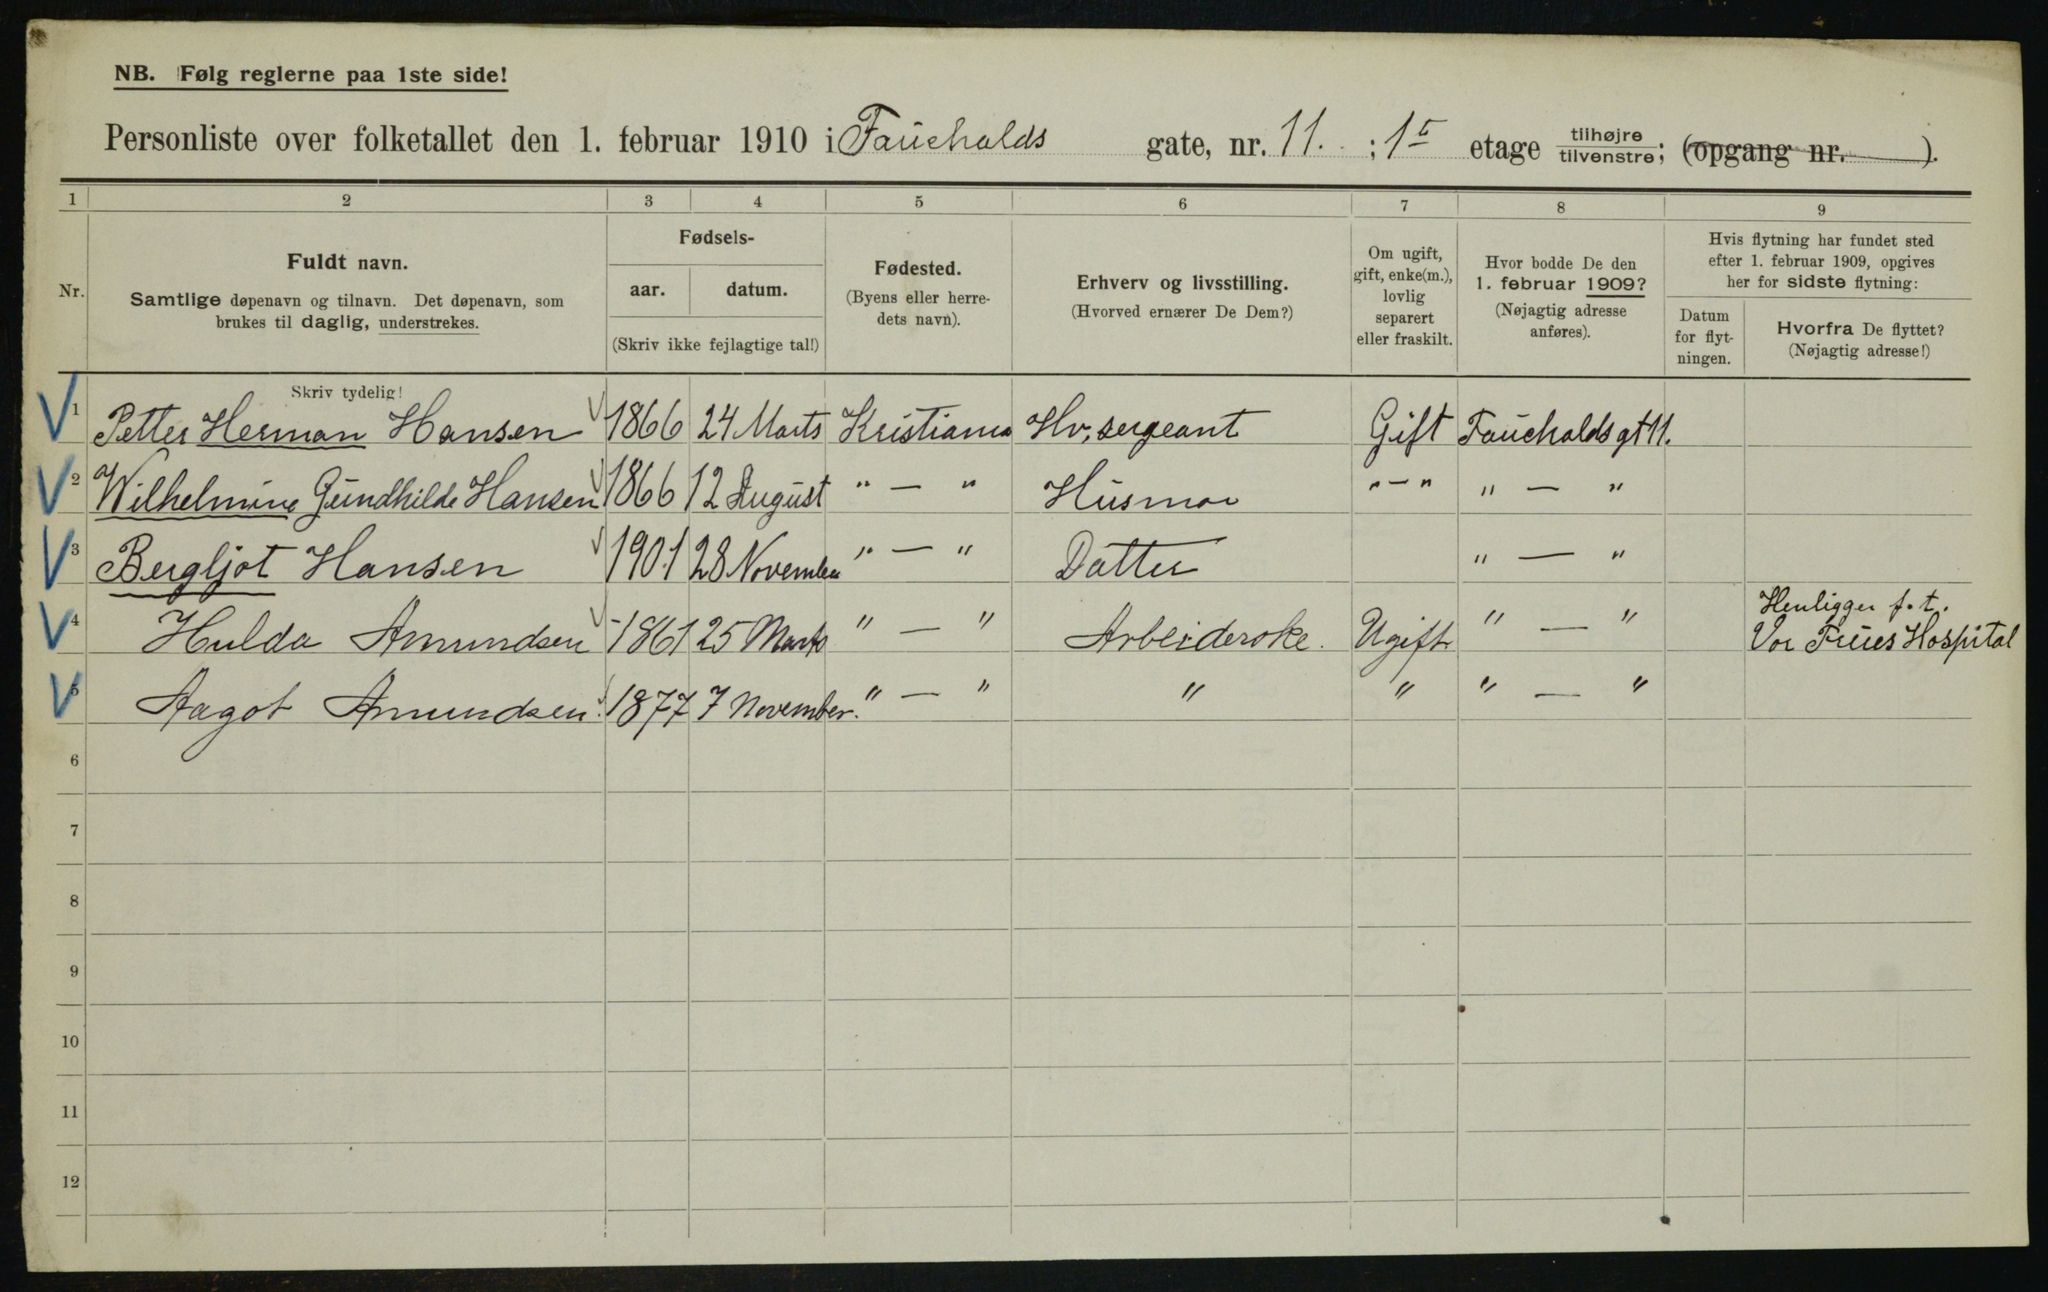 NB. Følg reglerne paa 1ste side!
Personliste over folketallet den 1. februar 1910 i Faucholds gate, nr. 11. ; 1ste etage tilhøjre tilvenstre; (opgang nr. ).
1 2 3 4 5 6 7 8 9
Nr.
Fuldt navn.
Samtlige døpenavn og tilnavn. Det døpenavn, som
brukes til daglig, understrekes.
Fødsels-
aar. datum.
(Skriv ikke fejlagtige tal!)
Fødested.
(Byens eller herre-
dets navn).
Erhverv og livsstilling.
(Hvorved ernærer De Dem?)
Om ugift,
gift, enke(m.),
lovlig
separert
eller fraskilt.
Hvor bodde De den
1. februar 1909?
(Nøjagtig adresse
anføres).
Hvis flytning har fundet sted
efter 1. februar 1909, opgives
her for sidste flytning:
Datum
for flyt-
ningen.
Hvorfra De flyttet?
(Nøjagtig adresse!)
Skriv tydelig!
1 Petter Herman Hansen 1866 24 Marts Kristiania Hv. sergeant Gift Faucholdsgt 11.
2 Wilhelmine Gundhilde Hansen 1866 12 August " — " Husmor " — " " — "
3 Bergljot Hansen 1901 28 November " — " Datter " — "
Henligger f.t.
4 Hulda Amundsen 1861 25 Marts " — " Arbeiderske. Ugift " — " Vor Frues Hospital
5 Aagot Amundsen. 1877 7 November. " — " " " " — "
6
7
8
9
10
11
12